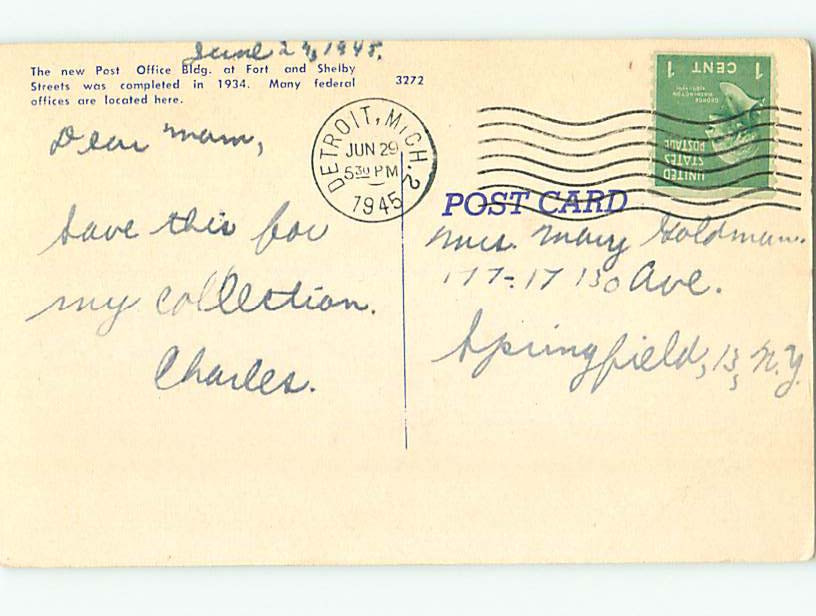 June 29, 1945.
The new Post Office Bldg. at Fort and Shelby
Streets was completed in 1934. Many federal
offices are located here.
3272
Dear Mam,
Save this for
my collection.
Charles.
DETROIT, MICH. 2
JUN 29
5 30 PM
1945
1 CENT 1
GEORGE
WASHINGTON
UNITED
STATES
POSTAGE
POST CARD
Mrs. Mary Goldman.
177-17 130 Ave.
Springfield, 13, N.Y.